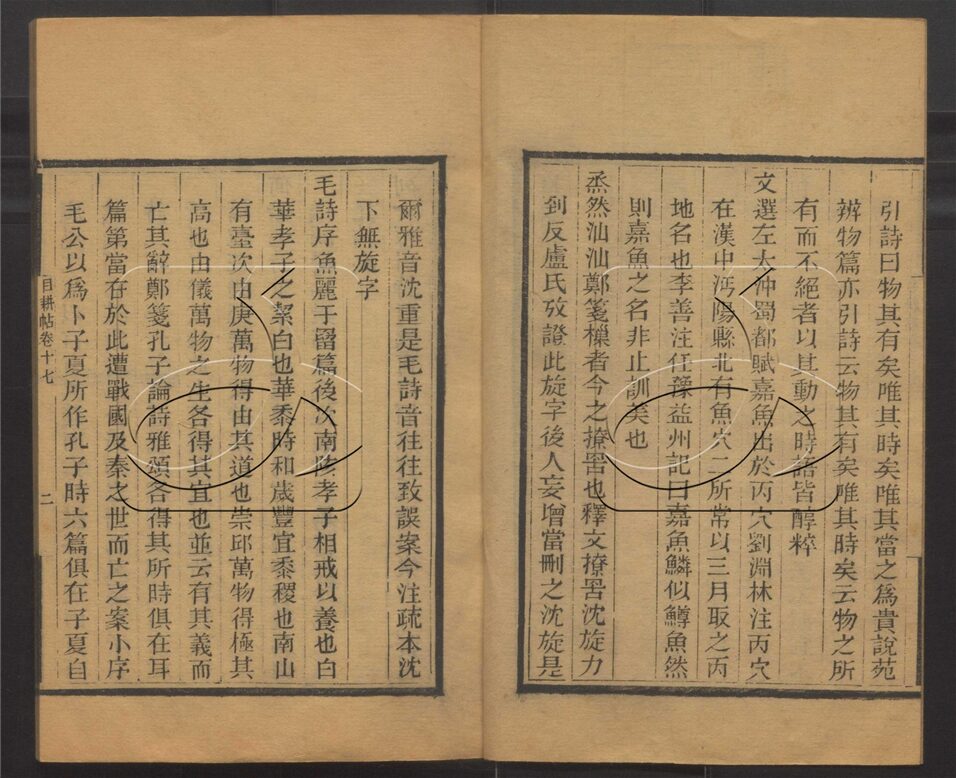 引詩曰物其有矣唯其時矣唯其當之爲貴說苑
辨物篇亦引詩云物其有矣唯其時矣云物之所
有而不絕者以其動之時語皆醇粹
文選左太沖蜀都賦嘉魚出於丙穴劉淵林注丙穴
在漢中沔陽縣北有魚穴二所常以三月取之丙
地名也李善注任豫益州記曰嘉魚鱗似鱒魚然
則嘉魚之名非止訓美也
烝然汕汕鄭箋樔者今之撩罟也釋文撩罟沈旋力
到反盧氏攷證此旋字後人妄增當刪之沈旋是
爾雅音沈重是毛詩音往往致誤案今注疏本沈
下無旋字
毛詩序魚麗于罶篇後次南陔孝子相戒以養也白
華孝子之絜白也華黍時和歲豐宜黍稷也南山
有臺次由庚萬物得由其道也崇邱萬物得極其
高也由儀萬物之生各得其宜也並云有其義而
亡其辭鄭箋孔子論詩雅頌各得其所時俱在耳
篇第當在於此遭戰國及秦之世而亡之案小序
毛公以爲卜子夏所作孔子時六篇俱在子夏自
目耕帖卷十七
二